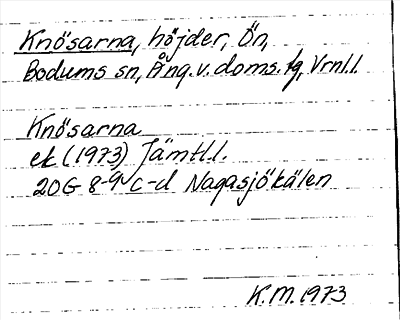 Knösarna, höjder, Ön,
Bodums sn, Ång.v. doms. tg, Vrnl.l.
Knösarna
ek (1973) Jämtl.l.
20G 8-9 c-d Nagasjökälen
K.M. 1973